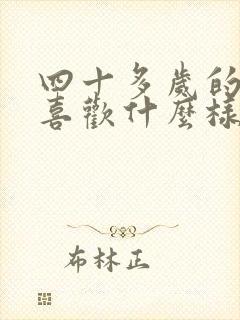 四十多歲的
喜歡什麼樣
布林正